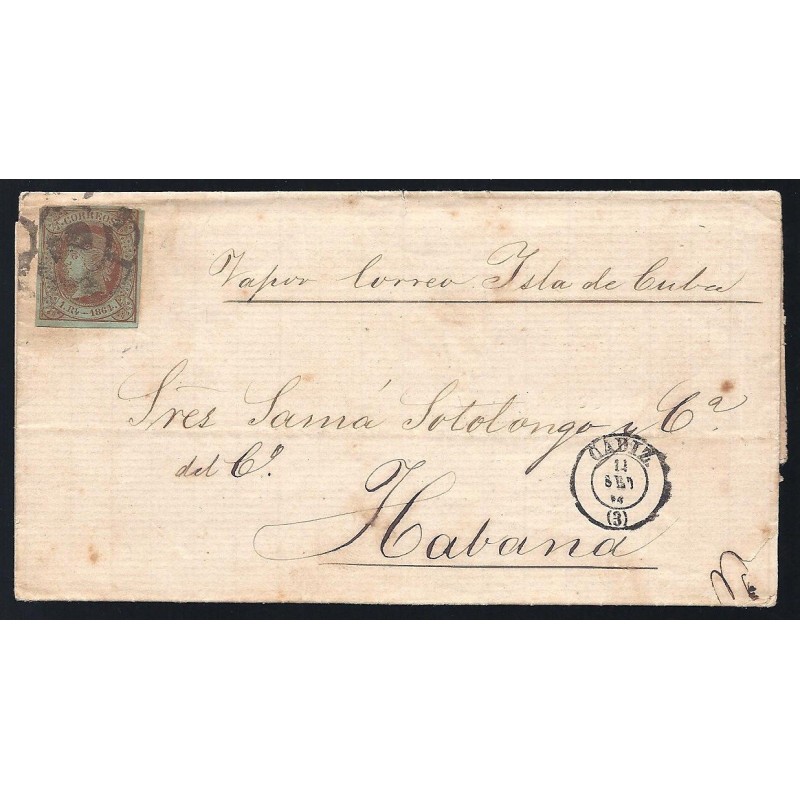 CORREOS
1 Rl - 1864.
Vapor Correo Isla de Cuba
Sres Samá Sotolongo y Cª
del Cº.
Habana
CADIZ
SET
(3)